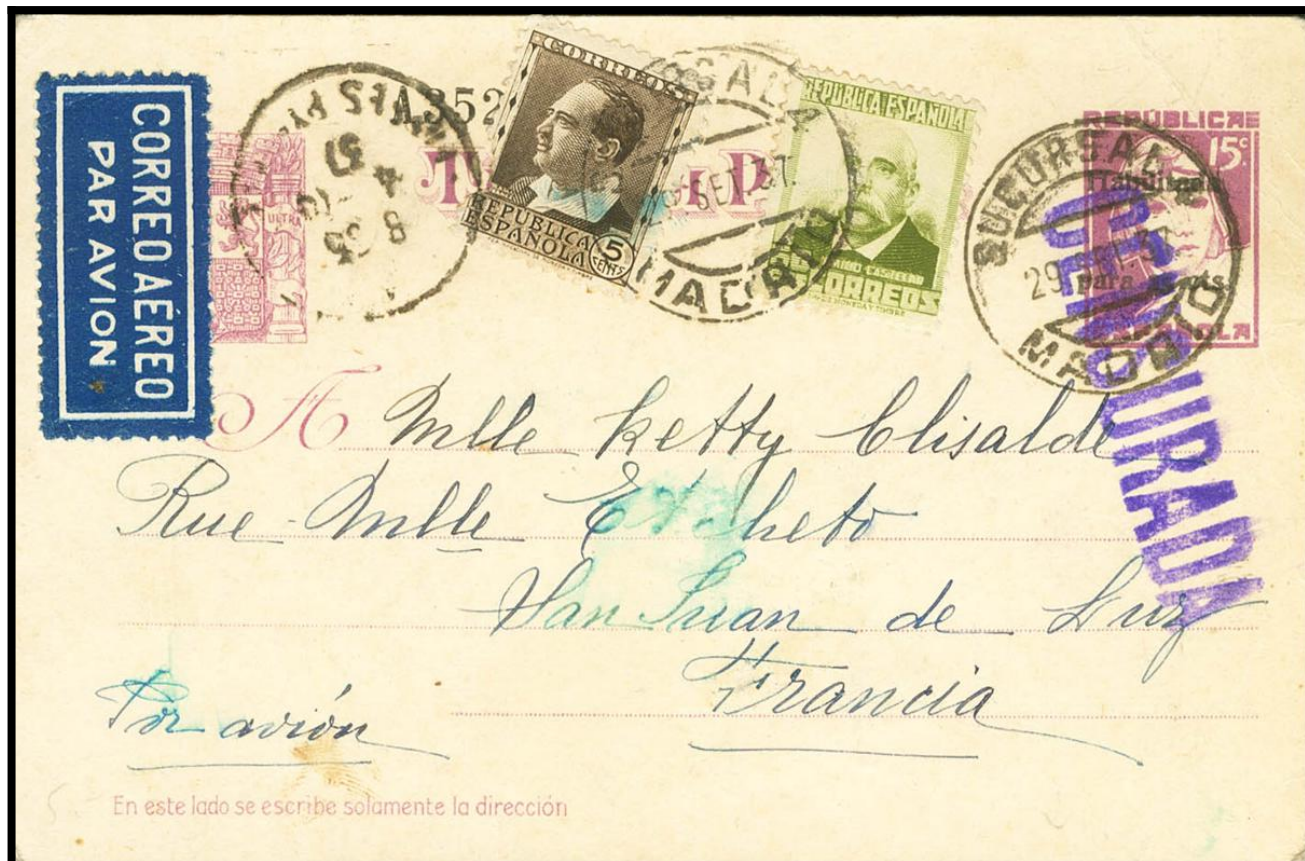 CORREO AÉREO
PAR AVION
A352
CORREOS
REPUBLICA
ESPAÑOLA
5
CENTS
SET. 37
MADRID
REPUBLICA ESPAÑOLA
EMILIO CASTELAR
CORREOS
REPÚBLICA
15c
SUCURSAL
29 SET. 37
para
MADRID
CENSURADA
ULTRA
A Mlle Ketty Elisalde
Rue Mlle Etcheto
San Juan de Luz
Francia
Por avión
En este lado se escribe solamente la dirección